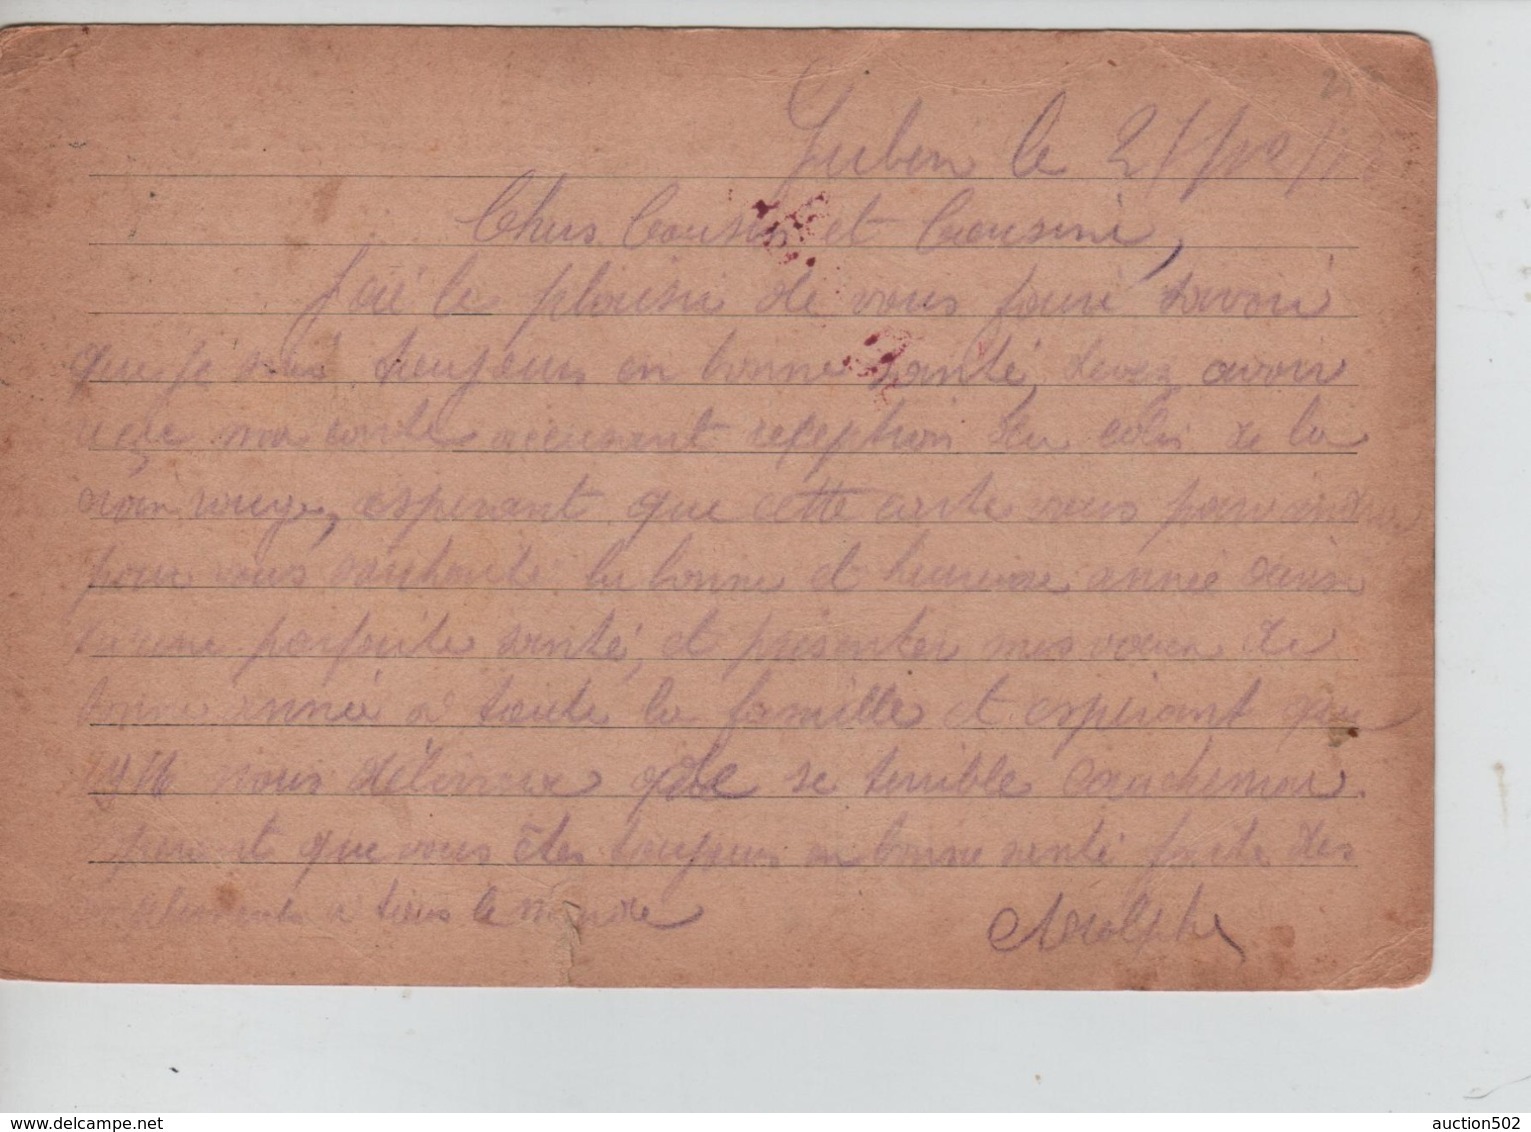 Guben le 2
Chers Cousin et Cousine,
J'ai le plaisir de vous faire savoir
que je suis toujours en bonne santé, devez avoir
reçue ma carte accusant reception du colis de la
croix rouge, esperant que cette carte vous parviendra
pour vous souhaité la bonne et heureuse année ainsi
parfaite santé, et présenter mes voeux de
bonne année à toute la famille et espérant que
nous délivrera de se terrible cauchemar.
et que vous êtes toujours en bonne santé faite des
à tous le monde Adolphe
auction502